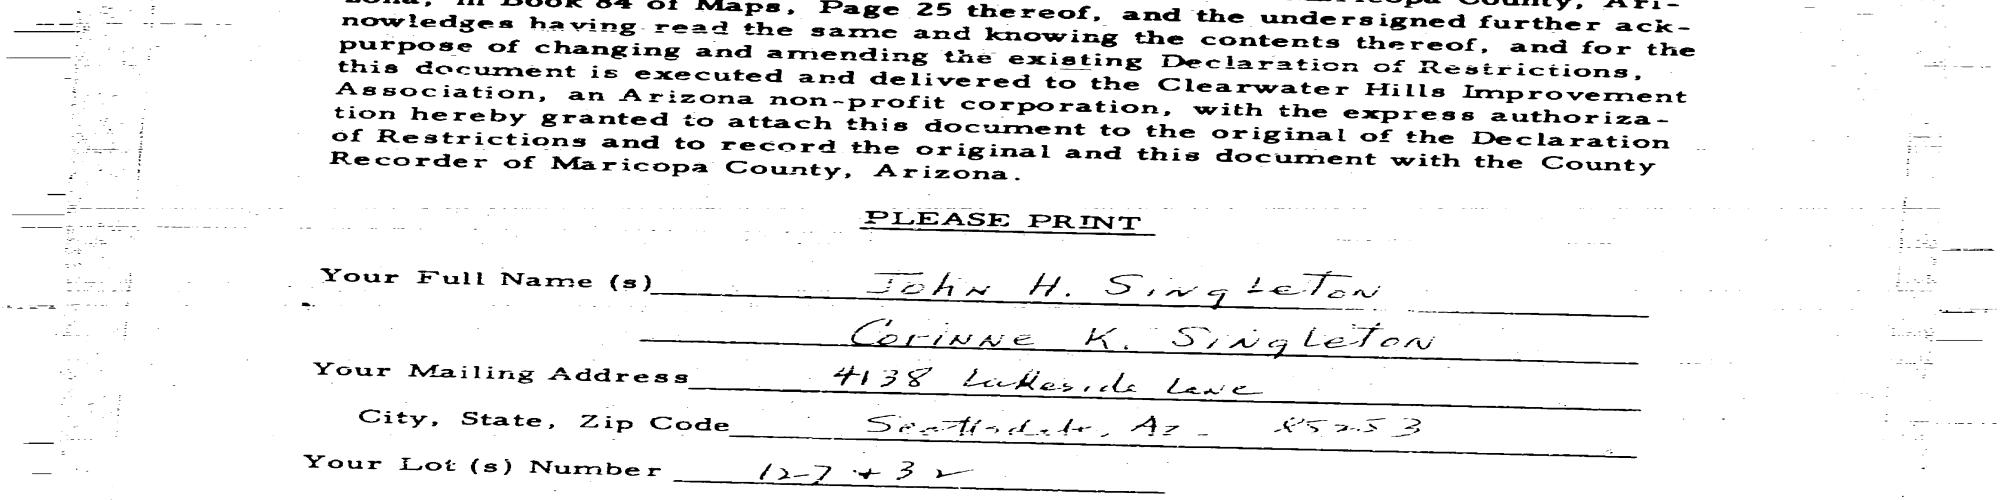 zona, in Book 84 of Maps, Page 25 thereof, and the undersigned further ack-
nowledges having read the same and knowing the contents thereof, and for the
purpose of changing and amending the existing Declaration of Restrictions,
this document is executed and delivered to the Clearwater Hills Improvement
Association, an Arizona non-profit corporation, with the express authoriza-
tion hereby granted to attach this document to the original of the Declaration
of Restrictions and to record the original and this document with the County
Recorder of Maricopa County, Arizona.
PLEASE PRINT
Your Full Name (s) John H. Singleton
Corinne K. Singleton
Your Mailing Address 4138 Lakeside Lane
City, State, Zip Code Scottsdale, Az - 85253
Your Lot (s) Number